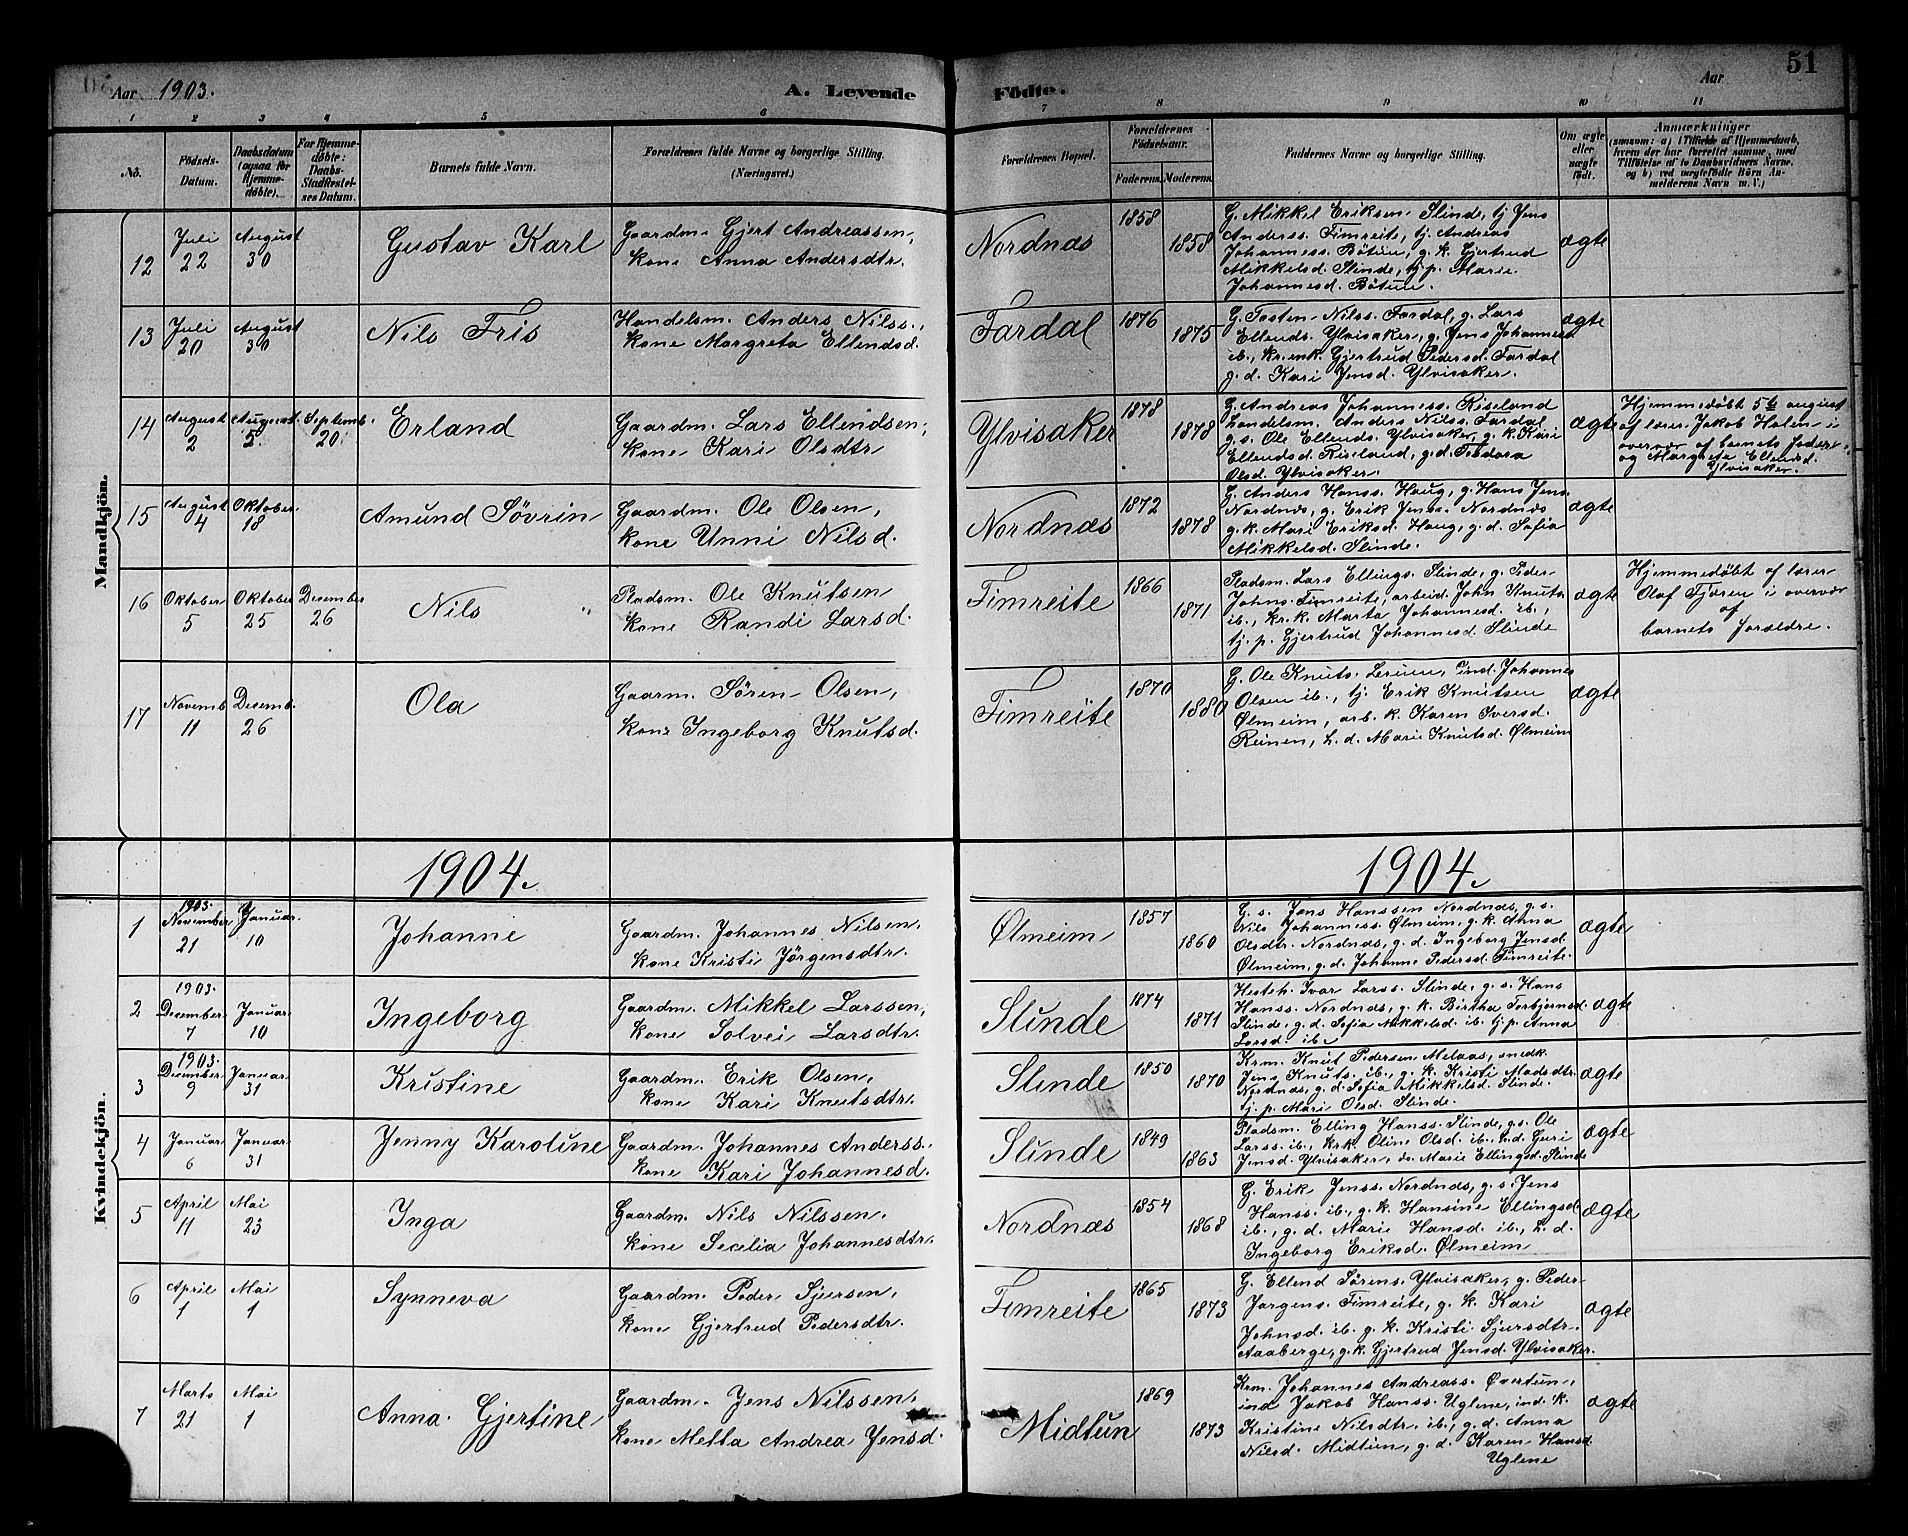 51
Aar 1903.
A. Levende Födte.
Aar
1 2 3 4 5 6 7 8 9 10 11
No.
Födsels-
Datum.
Daabsdatum
(ogsaa for
Hjemme-
döbte).
For Hjemme-
döbte:
Daabs-
Stadfæstel-
ses Datum.
Barnets fulde Navn.
Forældrenes fulde Navne og borgerlige Stilling.
(Næringsvei.)
Forældrenes Bopæl.
Forældrenes
Födselsaar.
Faderens. Moderens.
Faddernes Navne og borgerlige Stilling.
Om ægte
eller
uægte
født.
Anmærkninger
(saasom: a) i Tilfælde af Hjemmedaab,
hvem der har forrettet samme, med
Tilföielse af to Daabsvidners Navne,
og b) ved uægtefödte Börn An-
melderens Navn m. V.)
Mandkjön.
12
Juli
22
August
30
Gustav Karl
Gaardm. Gjert Andreassen,
kone Anna Andersdtr.
Nordnæs
1858
1858
G. Mikkel Eriksen Slinde, tj. Jens
Anderss. Timreite, tj. Andreas
Johanness. Bötun, g. k. Gjertrud
Mikkelsd. Slinde, tj. p. Marie
Johannesd. Bötun.
ægte
13
Juli
20
August
30
Nils Fris
Handelsm. Anders Nilss.,
kone Margreta Ellendsd.
Fardal
1876
1875
G. Tosten Nilss. Fardal, g. Lars
Ellends. Ylvisaker, g. Jens Johanness.
ib., kr. enk. Gjertrud Pedersd. Fardal
g. d. Kari Jensd. Ylvisaker.
ægte
14
August
2
August
5
Septemb.
20
Erland
Gaardm. Lars Ellendsen,
kone Kari Olsdtr
Ylvisaker
1878
1878
G. Andreas Johanness. Riseland
Landelsm. Anders Nilss. Fardal
g. s. Ole Ellends. Ylvisaker, g. k. Kari
Ellendsd. Riseland, g. d. Teodora
Olsd. Ylvisaker.
ægte
Hjemmedøbt 5te august
af lærer Jakob Holen i
overvær af barnets fader
og Margreta Ellendsd.
Ylvisaker.
15
August
4
Oktober
18
Amund Sövrin
Gaardm. Ole Olsen,
kone Unni Nilsd.
Nordnæs
1872
1878
G. Anders Hanss. Haug, g. Hans Jens.
Nordnæs, g. Erik Jenss. Nordnæs
g. k. Mari Eriksd. Haug, g. d. Sofia
Mikkelsd. Slinde.
ægte
16
Oktober
5
Oktober
25
Desember
26
Nils
Pladsm. Ole Knutsen
kone Randi Larsd.
Timreite
1866
1871
Pladsm. Lars Ellings. Slinde, g. Peder
Johns. Timreite, arbeid. John Knuts.
ib., kr. k. Marta Johannesd. ib.,
tj. p. Gjertrud Johannesd. Slinde
ægte
Hjemmedøbt af lærer
Olaf Fjøren i overvær
af
barnets forældre.
17
Novemb
11
Desemb.
26
Ola
Gaarm. Sören Olsen,
kone Ingeborg Knutsd.
Timreite
1870
1880
G. Ole Knuts. Lerum, ind. Johannes
Olsen ib., tj. Erik Knutsen
Ølmeim, arb. k. Karen Iversd.
Reinen, h. d. Marie Knutsd. Ølmeim
ægte
1904.
1904.
Kvindekjön.
1
1903.
November
21
Januar
10
Johanne
Gaardm. Johannes Nilsen.
kone Kristi Jörgensdtr.
Ølmeim
1857
1860
G. s. Jens Hanssen Nordnæs, g. s.
Nils Johanness. Ølmeim, g. k. Anna
Olsdtr. Nordnæs, g. d. Ingeborg Jensd.
Ølmeim, g. d. Johanne Pedersd. Timreite.
ægte
2
1903.
December
7
Januar
10
Ingeborg
Gaardm. Mikkel Larssen,
kone Solvei Larsdtr.
Slinde
1874
1871
Hesteh. Ivar Larss. Slinde, g. s. Hans
Hanss. Nordnæs, g. k. Birtha Torbjörnsd.
Slinde, g. d. Sofia Mikkelsd. ib. tj. p. Anna
Larsd. ib.
ægte
3
1903.
December
9
Januar
31
Kristine
Gaardm. Erik Olsen,
kone Kari Knutsdtr.
Slinde
1850
1870
Krm. Knut Pedersen Melaas, snedk.
Jens Knuts. ib., g. k. Kristi Madsdtr.
Nordnæs, g. d. Sofia Mikkelsd. Slinde.
tj. p. Mari Olsd. Slinde.
ægte
4
Januar
6
Januar
31
Jenny Karoline
Gaardm. Johannes Anderss.
kone Kari Johannesd.
Slinde
1849
1863
Pladsm. Elling Hanss. Slinde, g. s. Ole
Larss. ib., krk. Oline Olsd. ib., h. d. Guri
Jensd. Ylvisaker, do. Marie Ellingsd. Slinde
ægte
5
April
11
Mai
23
Inga
Gaardm. Nils Nilssen.
kone Secelia Johannesdtr.
Nordnæs
1854
1868
G. Erik Jenss. Nordnæs, g. s. Jens
Hanss. ib., g. k. Hansine Ellingsd
ib., g. d. Marie Hansd. ib., h. d.
Ingeborg Eriksd. Ølmeim
ægte
6
April
1
Mai
1
Synneva
Gaardm. Peder Sjursen,
kone Gjertrud Pedersdtr.
Timreite
1865
1873
G. Ellend Sörens. Ylvisaker, g. Peder
Jorgens. Timreite, g. k. Kari
Johnsd. ib. g. k. Kristi Sjursdtr.
Aaaberge, g. k. Gjertrud Jensd. Ylvisaker.
ægte
7
Marts
21
Mai
1
Anna Gjertine
Gaardm. Jens Nilssen.
kone Metta Andrea Jensd.
Midtun
1869
1873
Krm. Johannes Andreass. Övertun,
ind Jakob Hanss. Uglene, ind. k.
Kristine Nilsdtr. ib., g. d. Anna
Nilsd. Midtun, g. d. Karen Hansd.
Uglene
ægte